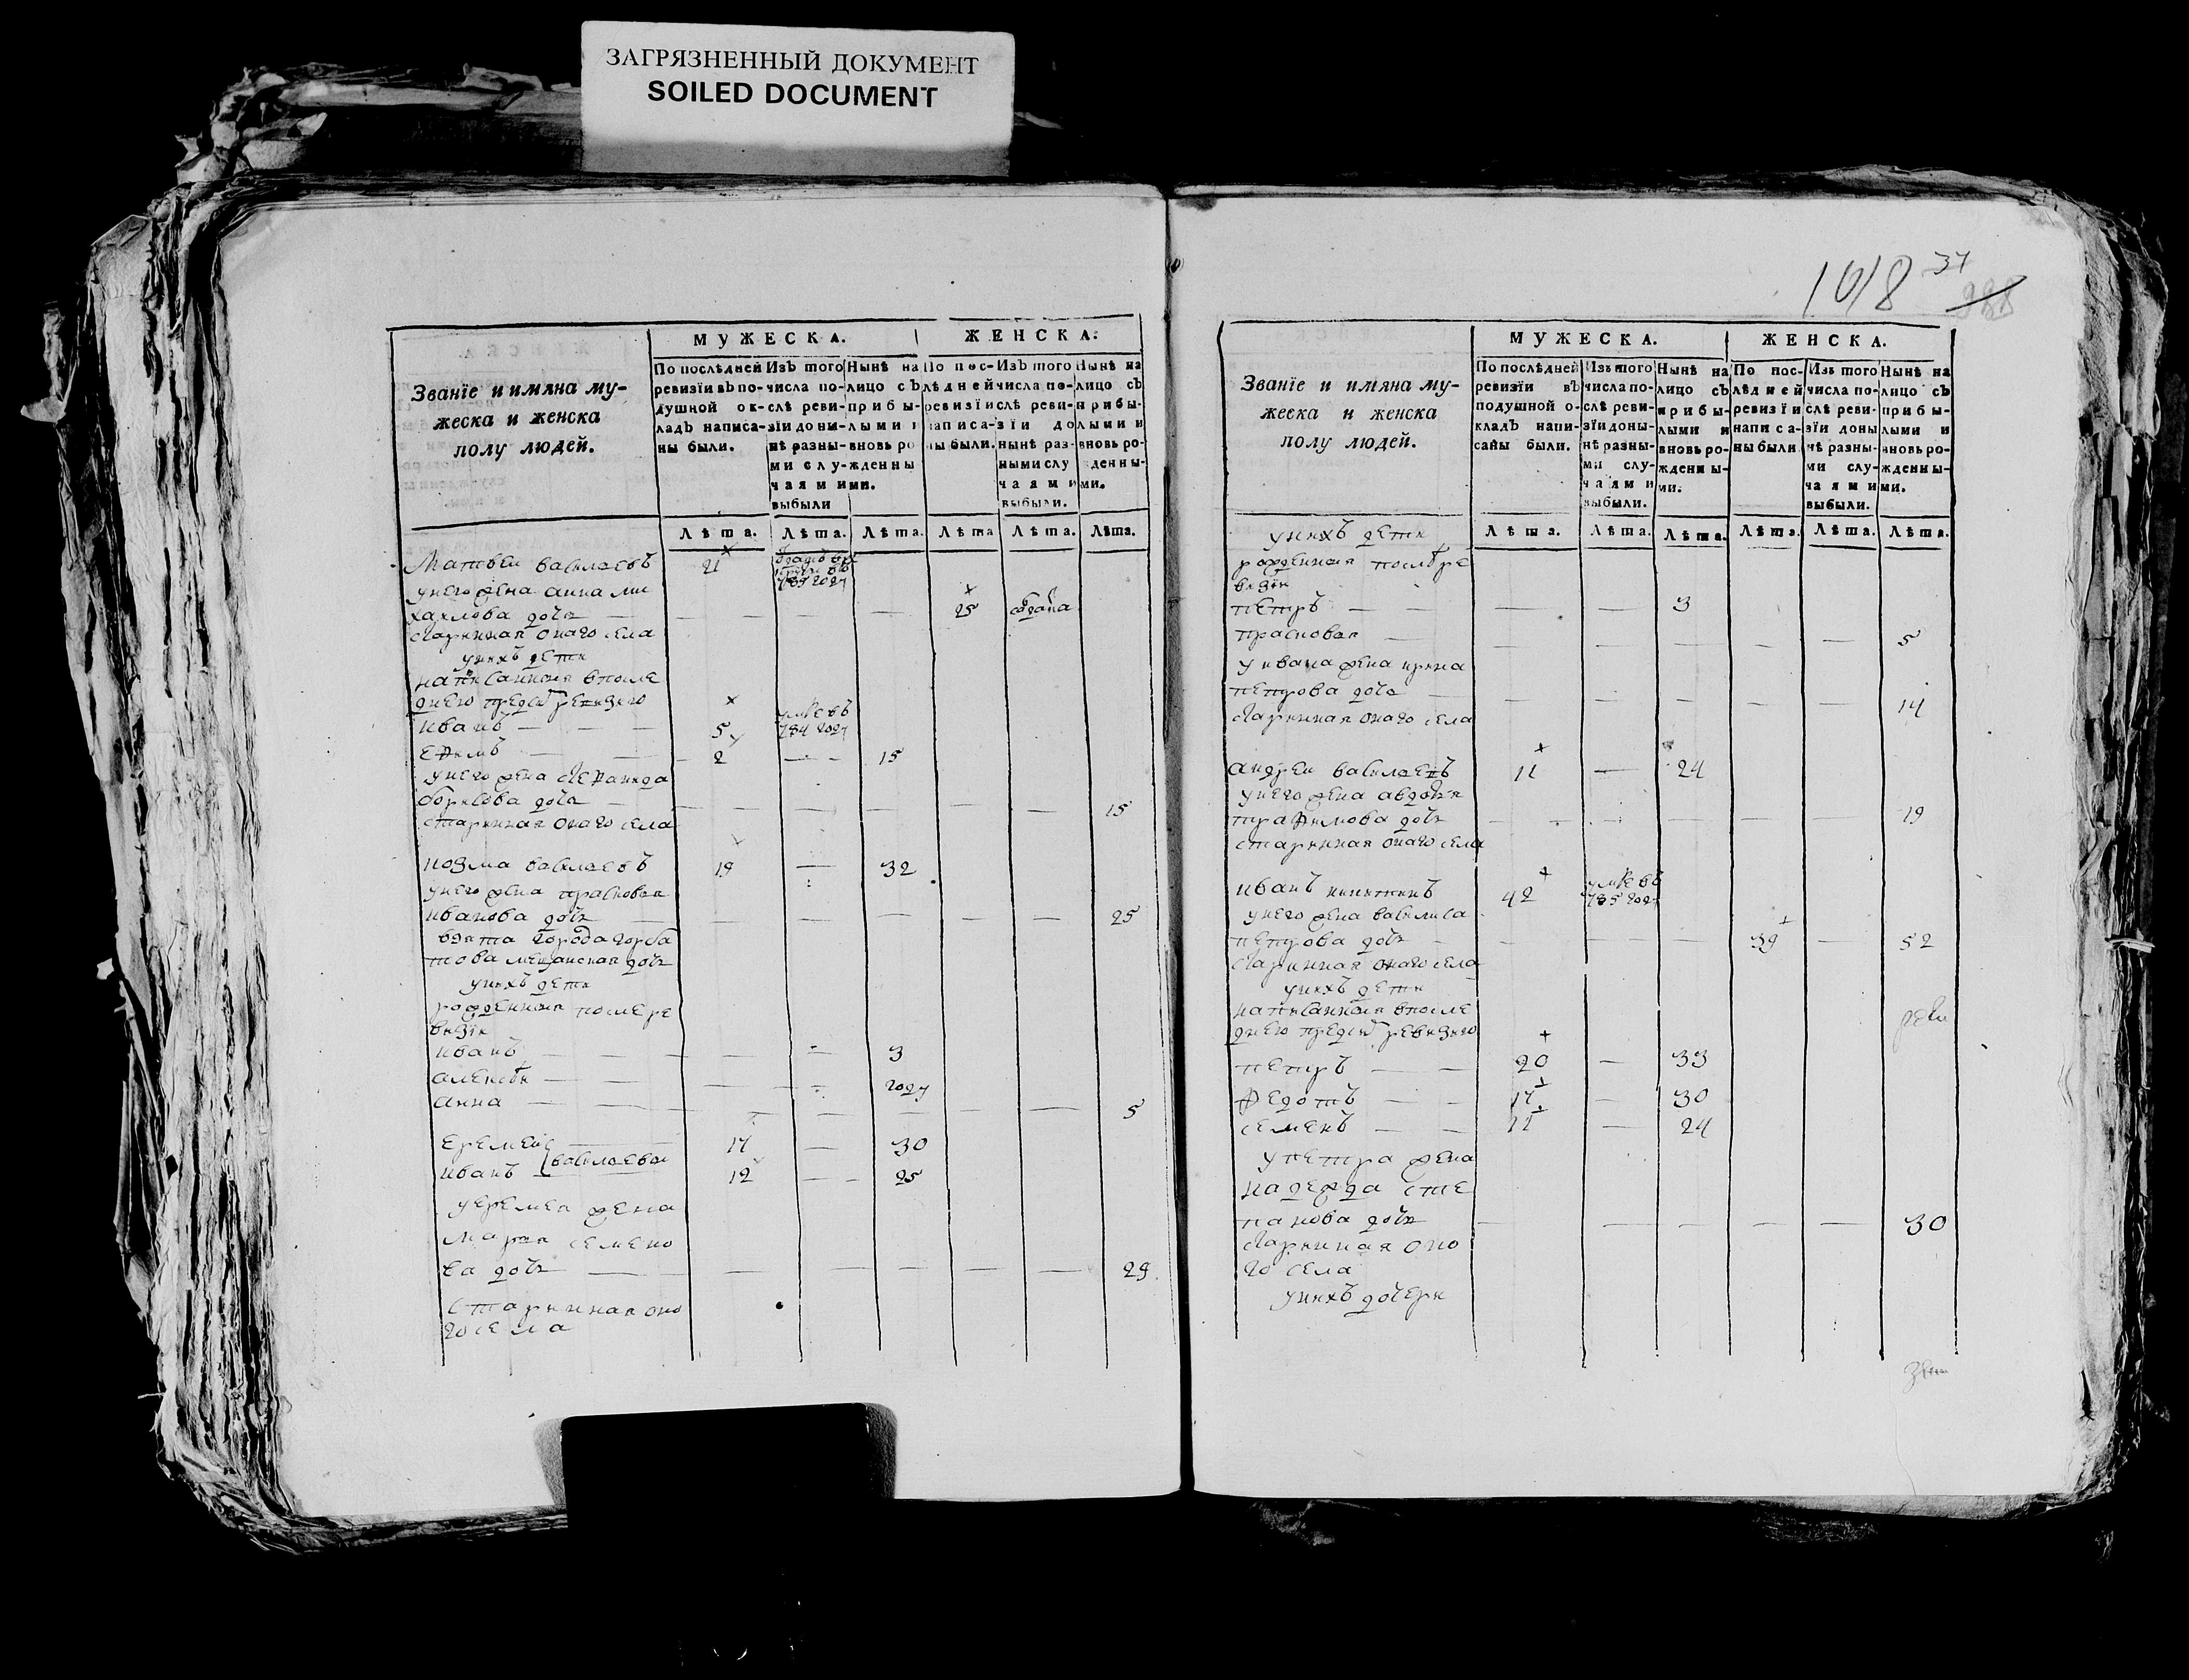 ЗАГРЯЗНЕННЫЙ ДОКУМЕНТ
SOILED DOCUMENT
Званїе и имяна му-
жеска и женска
полу людей.
МУЖЕСКА.
ЖЕНСКА:
По послѣдней
ревизїи въ по-
душной ок-
ладъ написа-
ны были.
Изъ того
числа по-
слѣ реви-
зїи доны-
нѣ разны-
ми слу-
чаями
выбыли
Нынѣ на
лицо съ
прибы-
лыми и
вновь ро
жденны
ми.
По пос-
лѣдней
ревизїи
написа-
ны были.
Изъ того
числа по-
слѣ реви-
зїи до
нынѣ раз-
ными слу
чаями
выбыли.
Нынѣ на
лицо съ
прибы-
лыми и
вновь ро-
денны-
ми.
Лѣта. Лѣта. Лѣта. Лѣта Лѣта. Лѣта.
Матвеи василиевъ 21
унего жена анна ми
хаилова дочь 25 отдана
старинная онаго села
унихъ дети
написанныя впосле
днею предсю ревизию
иванъ 5 умре въ 784 году
ефимъ 2 15
унего жена степанида
борисова дочь 15
старинная онаго села
козма василиевъ 19 32
унего жена прасковья
иванова дочь 25
взята города горба
това мещанская дочь
унихъ дети
рожденныя после ре
визїи
иванъ 3
алексеи году
анна 5
еремей 17 30
иванъ василиевы 12 25
уеремея жена
марья семено
ва дочь 29
старинная оно
го села
1018 37
Званїе и имяна му-
жеска и женска
полу людей.
МУЖЕСКА.
ЖЕНСКА.
По послѣдней
ревизїи въ
подушной о-
кладъ напи-
саны были.
Изъ того
числа по-
слѣ реви-
зїи доны-
нѣ разны-
ми слу-
чаями
выбыли.
Нынѣ на
лицо съ
прибы-
лыми и
вновь ро-
жденны-
ми.
По пос-
лѣдней
ревизїи
написа-
ны были
Изъ того
числа по-
слѣ реви-
зїи доны
нѣ разны-
ми слу-
чаями
выбыли.
Нынѣ на
лицо съ
прибы-
лыми и
вновь ро-
жденны-
ми.
Лѣта. Лѣта. Лѣта. Лѣта. Лѣта. Лѣта.
унихъ дети
рожденныя после ре
визїи
петръ 3
прасковья 5
у ивана жена ирина
петрова дочь 14
старинная онаго села
андреи василиевъ 11 24
унего жена авдотья
трафимова дочь 19
старинная онаго села
иванъ никитинъ 42 умре въ 785 году
унего жена василиса
петрова дочь 39 52
старинная онаго села
унихъ дети
написанныя впосле
днею предсю ревизию
петръ 20 33
федотъ 17 30
семенъ 11 24
у петра жена
надежда сте
панова дочь 30
старинная оно
го села
унихъ дочери